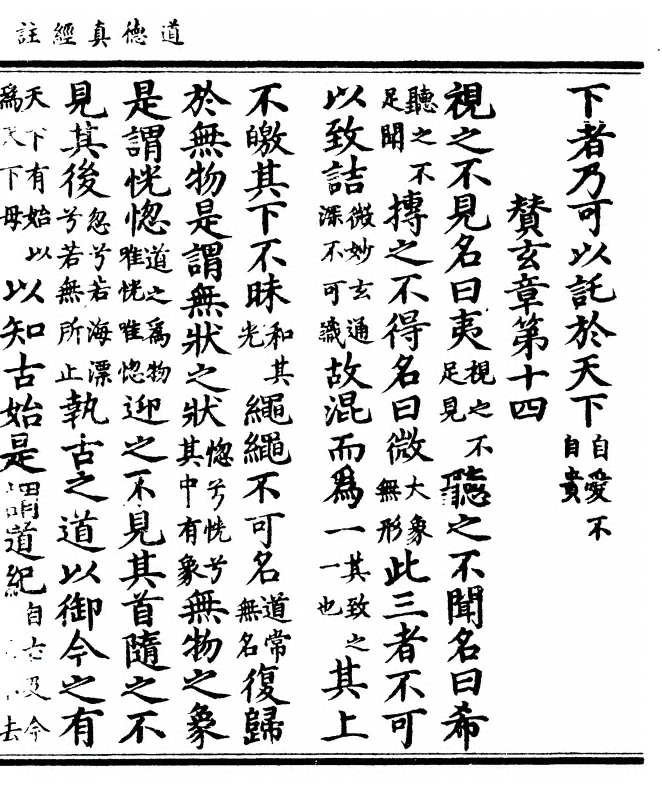 道德真經註
下者乃可以託於天下自愛不自貴
賛玄章第十四
視之不見名曰夷視之不足見聽之不聞名曰希
聽之不足聞搏之不得名曰微大象無形此三者不可
以致詰微妙玄通深不可識故混而爲一其致之一也其上
不皦其下不昧和其光繩繩不可名道常無名復歸
於無物是謂無狀之狀惚兮恍兮其中有象無物之象
是謂恍惚道之爲物唯恍唯惚迎之不見其首隨之不
見其後忽兮若海漂兮若無所止執古之道以御今之有
天下有始以爲天下母以知古始是謂道紀自古及今去